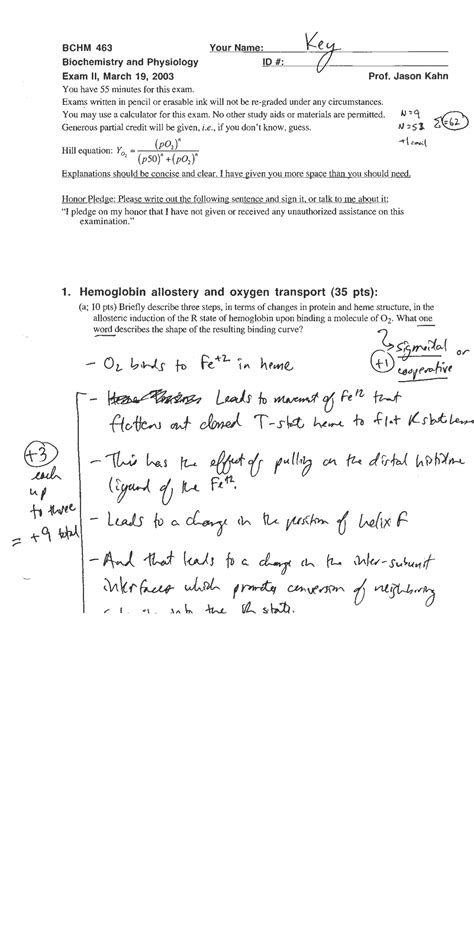 BCHM 463 Your Name: Key
Biochemistry and Physiology ID #:
Exam II, March 19, 2003 Prof. Jason Kahn
You have 55 minutes for this exam.
Exams written in pencil or erasable ink will not be re-graded under any circumstances.
You may use a calculator for this exam. No other study aids or materials are permitted.
Generous partial credit will be given, i.e., if you don't know, guess.
N=9
N=53 Σ=62
Hill equation: Y_O₂ = (pO₂)ⁿ / (p50)ⁿ+(pO₂)ⁿ
Explanations should be concise and clear. I have given you more space than you should need.
Honor Pledge: Please write out the following sentence and sign it, or talk to me about it:
"I pledge on my honor that I have not given or received any unauthorized assistance on this
examination."
1. Hemoglobin allostery and oxygen transport (35 pts):
(a; 10 pts) Briefly describe three steps, in terms of changes in protein and heme structure, in the
allosteric induction of the R state of hemoglobin upon binding a molecule of O₂. What one
word describes the shape of the resulting binding curve?
sigmoidal or
+1 cooperative
– O₂ binds to Fe⁺² in heme
– Leads to movement of Fe⁺² that
flattens out domed T-stat heme to flat R stat heme
– This has the effect of pulling on the distal histidine
ligand of the Fe⁺².
– Leads to a change in the position of helix F
– And that leads to a change in the inter-subunit
interfaces which promotes conversion of neighboring
into the R state.
+3
each
up
to three
= +9 total